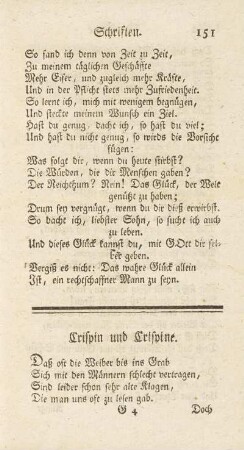 Schriften. 151
So fand ich denn von Zeit zu Zeit,
Zu meinem täglichen Geschäffte
Mehr Eifer, und zugleich mehr Kräfte,
Und in der Pflicht stets mehr Zufriedenheit.
So lernt ich, mich mit wenigem begnügen,
Und steckte meinem Wunsch ein Ziel.
Hast du genug, dacht ich, so hast du viel;
Und hast du nicht genug, so wirds die Vorsicht
fügen:
Was folgt dir, wenn du heute stirbst?
Die Würden, die dir Menschen gaben?
Der Reichthum? Nein! Das Glück, der Welt
genützt zu haben;
Drum sey vergnügt, wenn du dir dieß erwirbst.
So dacht ich, liebster Sohn, so sucht ich auch
zu leben.
Und dieses Glück kannst du, mit GOtt dir sel-
ber geben.
Vergiß es nicht: Das wahre Glück allein
Ist, ein rechtschaffner Mann zu seyn.
Crispin und Crispine.
Daß oft die Weiber bis ins Grab
Sich mit den Männern schlecht vertragen,
Sind leider schon sehr alte Klagen,
Die man uns oft zu lesen gab.
G 4 Doch